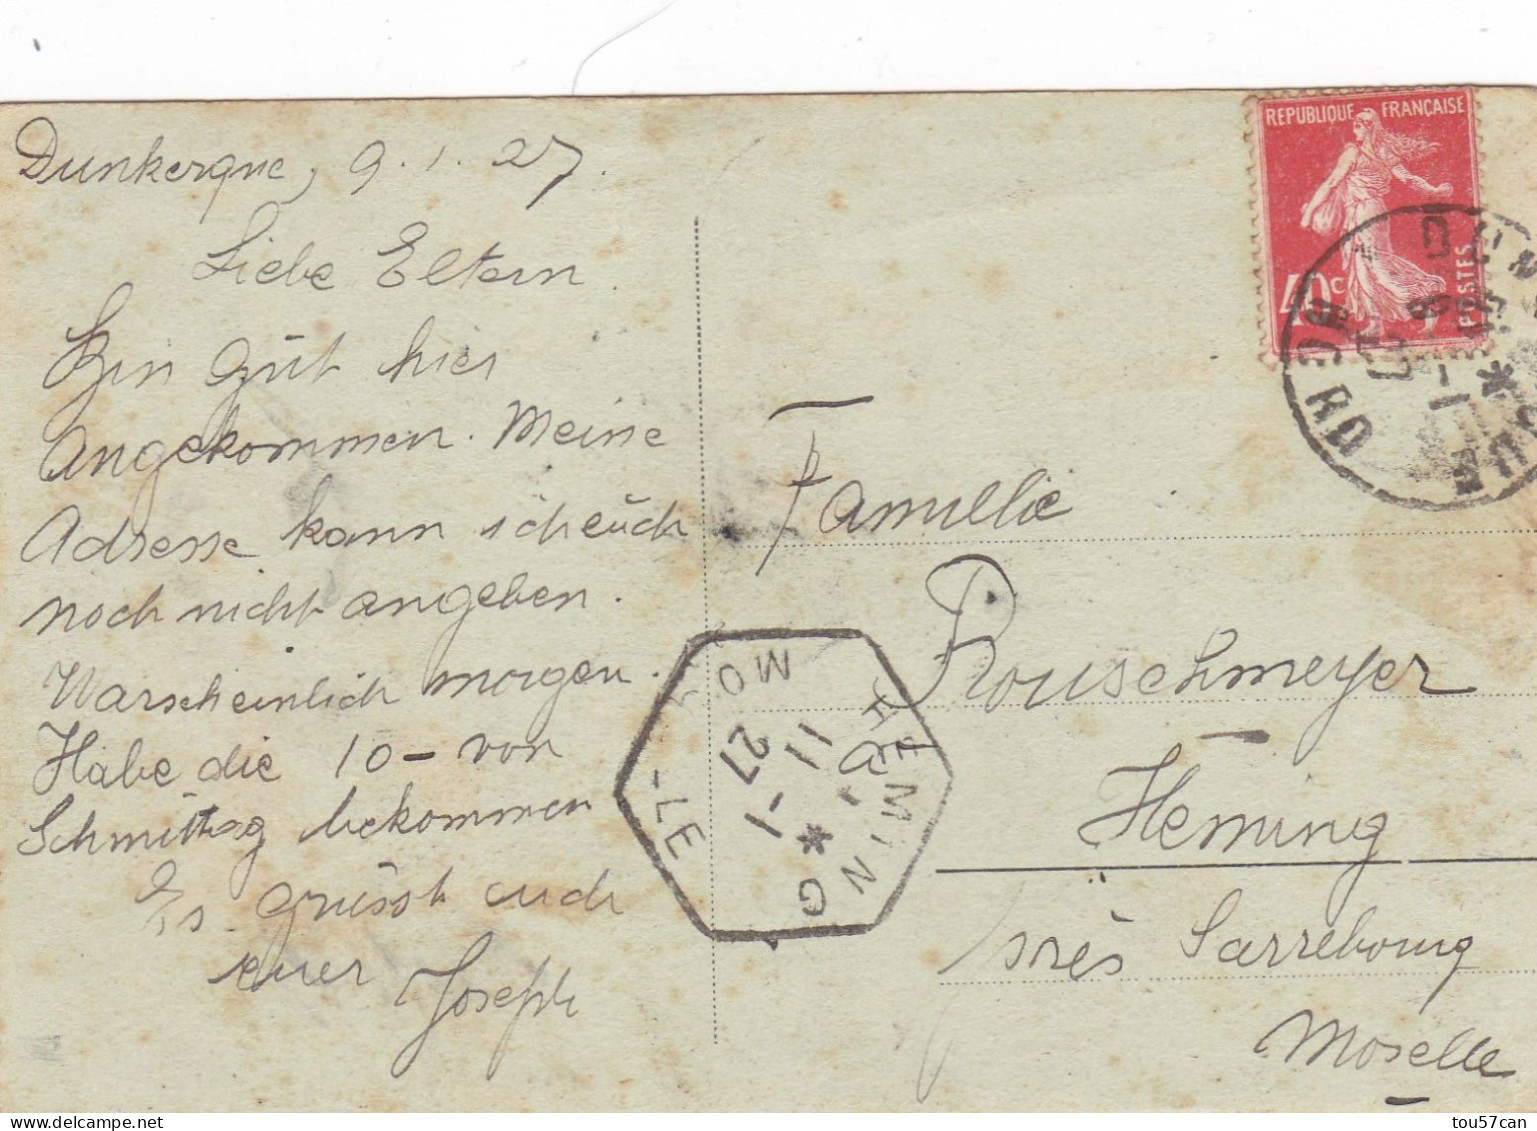 Dunkerque, 9.1.27.
Liebe Eltern.
Bin gut hier
Angekommen. Meine
Adresse kann ich euch
noch nicht angeben.
Warscheinlich morgen.
Habe die 10- von
Schmittag bekommen
Es grüsst euch
euer Joseph
REPUBLIQUE FRANÇAISE
40c
POSTES
DUNKERQUE
NORD
Famillie
Rouschmeyer
Heming
près Sarrebourg
Moselle
HEMING
11 -1
27
MOSELLE
tou57can